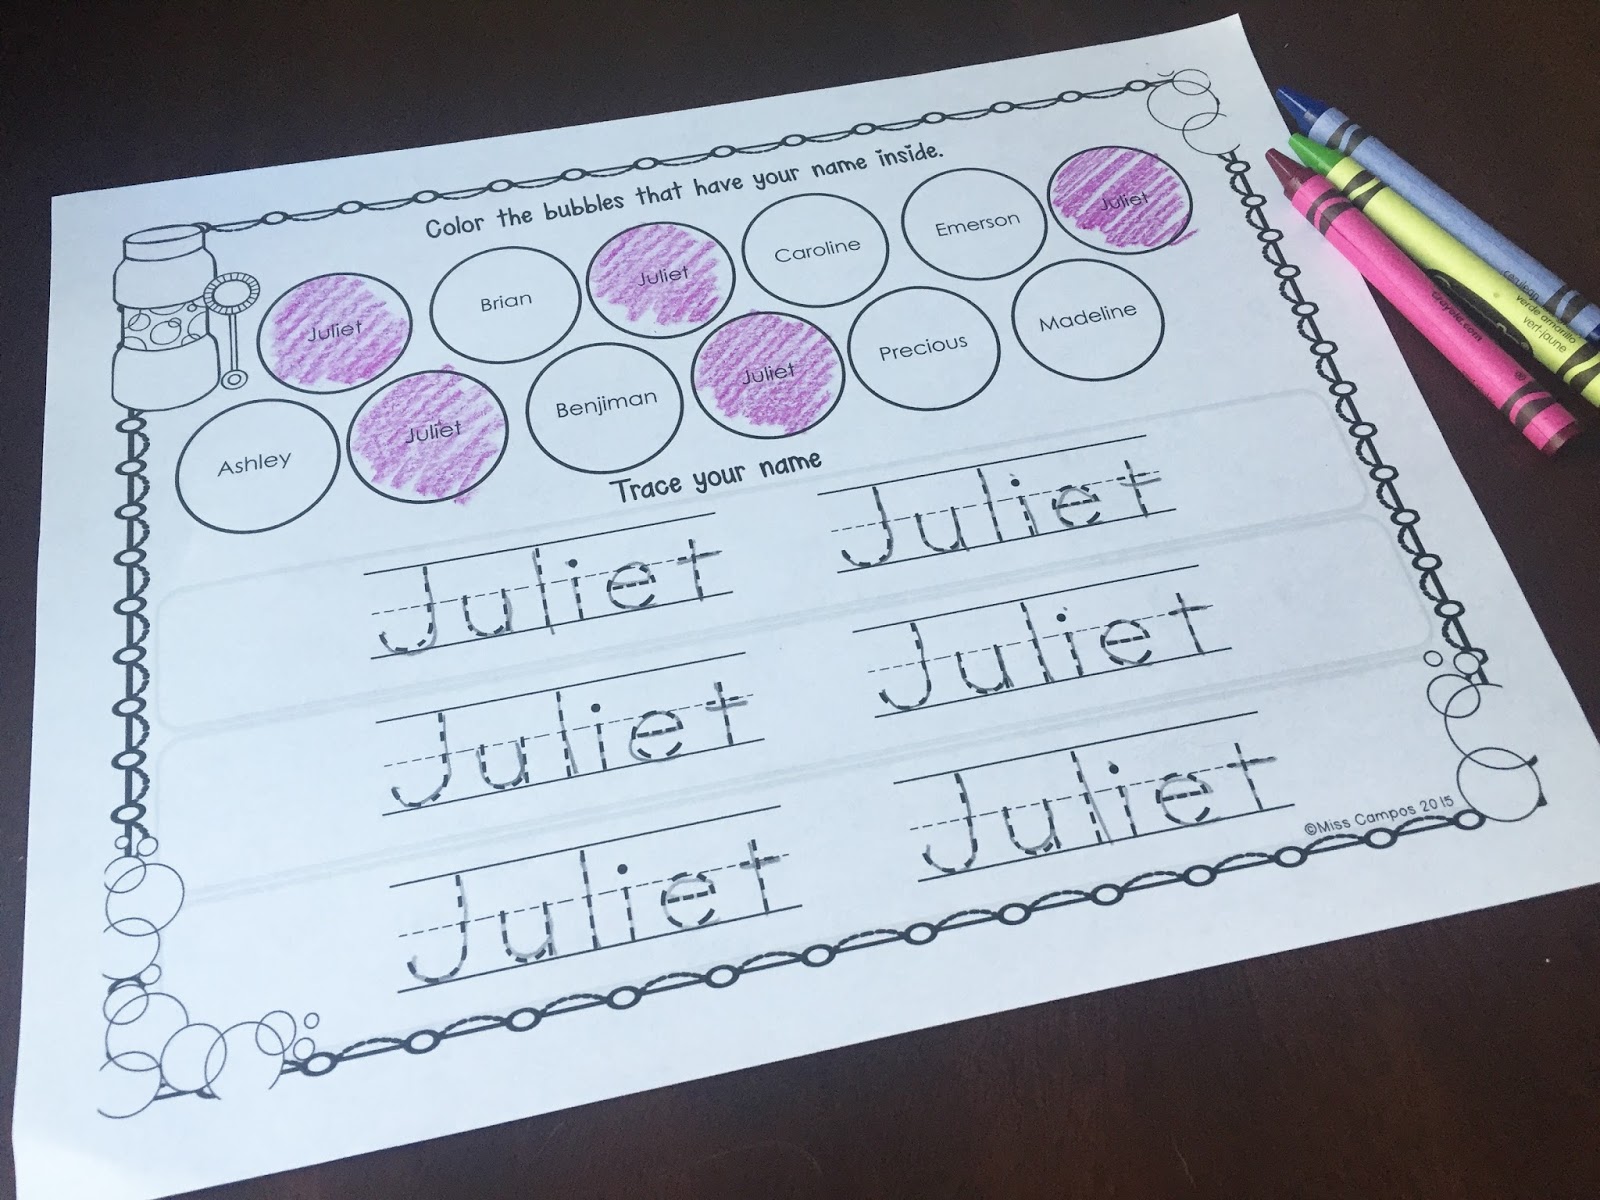 Color the bubbles that have your name inside.
Juliet Brian Juliet Caroline Emerson Juliet
Ashley Juliet Benjiman Juliet Precious Madeline
Trace your name
Juliet Juliet
Juliet Juliet
Juliet Juliet
©Miss Campos 2015
cerulean
verde amarillo
vert-jaune
Crayola.com